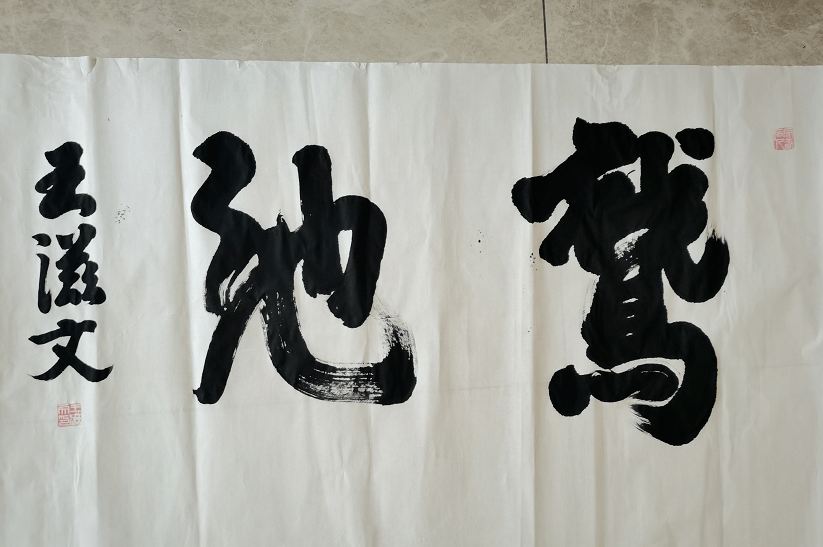 鵞池
王滋文